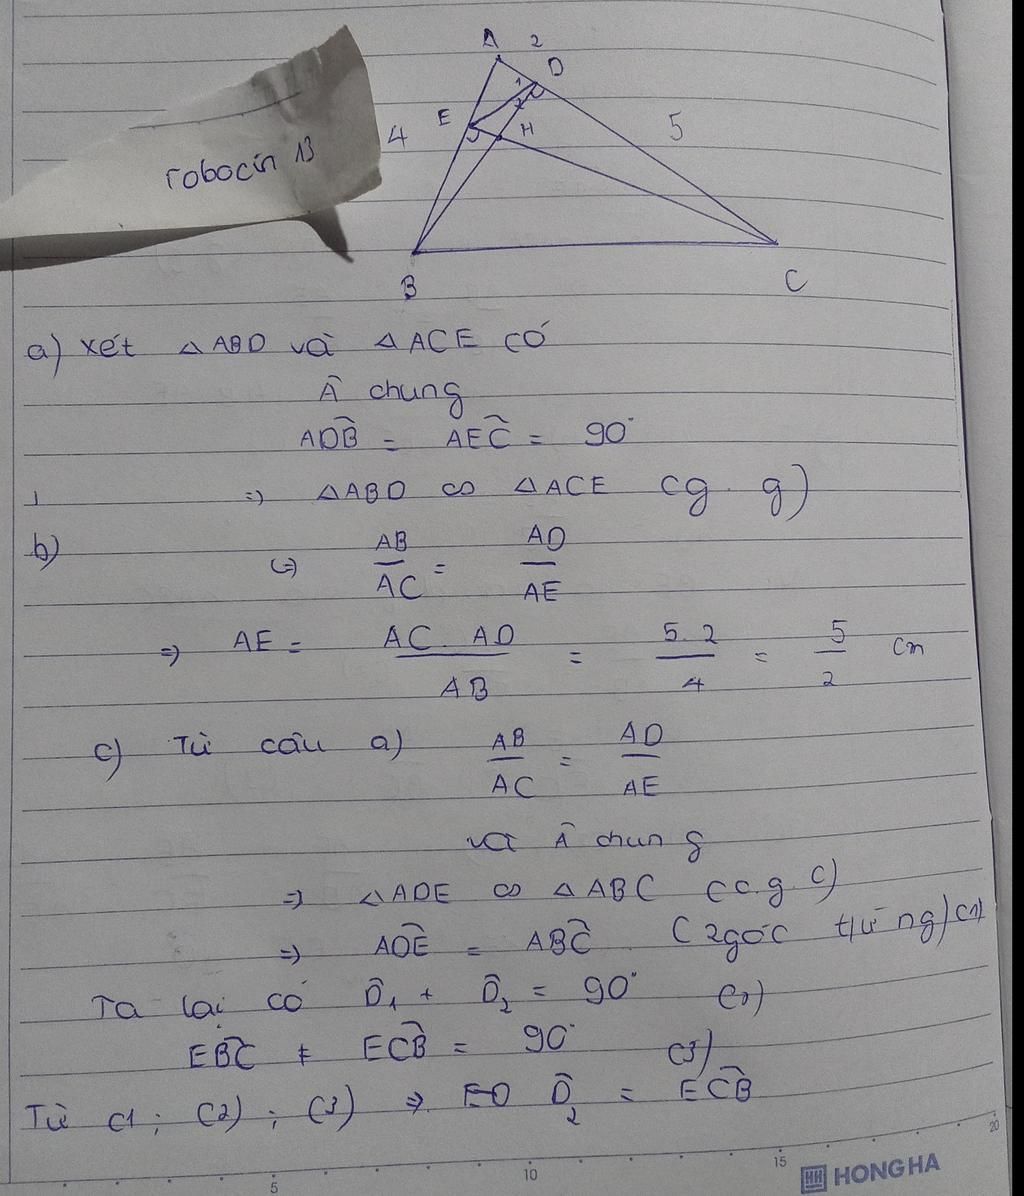 A 2
D
1
2
E
H
4
5
robocin 13
B
C
a) xét △ABD và △ACE có
Â chung
ADB̂ = AEĈ = 90°
=> △ABD ∽ △ACE (g.g)
b) (=) AB/AC = AD/AE
=> AE = AC.AD/AB = 5.2/4 = 5/2 cm
c) Từ câu a) AB/AC = AD/AE
và Â chung
=> △ADE ∽ △ABC (c.g.c)
=> ADÊ = ABĈ (2góc t/ứng) (1)
Ta lại có D̂₁ + D̂₂ = 90°
EBĈ + ECB̂ = 90° (3)
Từ (1; (2); (3) => D̂₂ = ECB̂
5 10 15 20
HH HONG HA